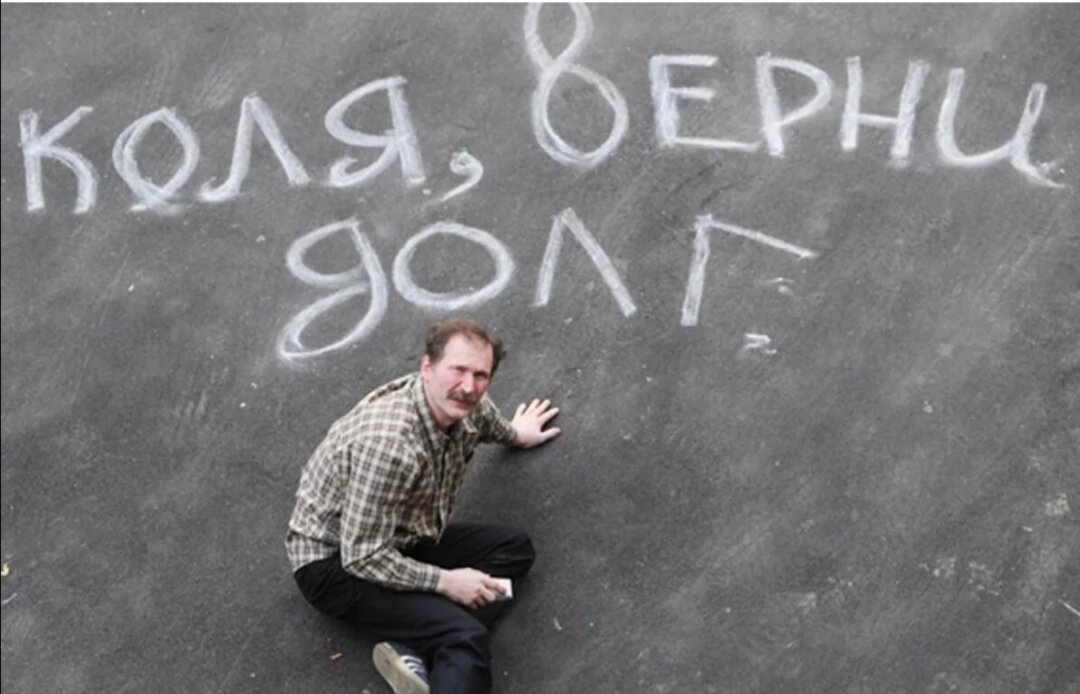 КОЛЯ, ВЕРНИ
ДОЛГ